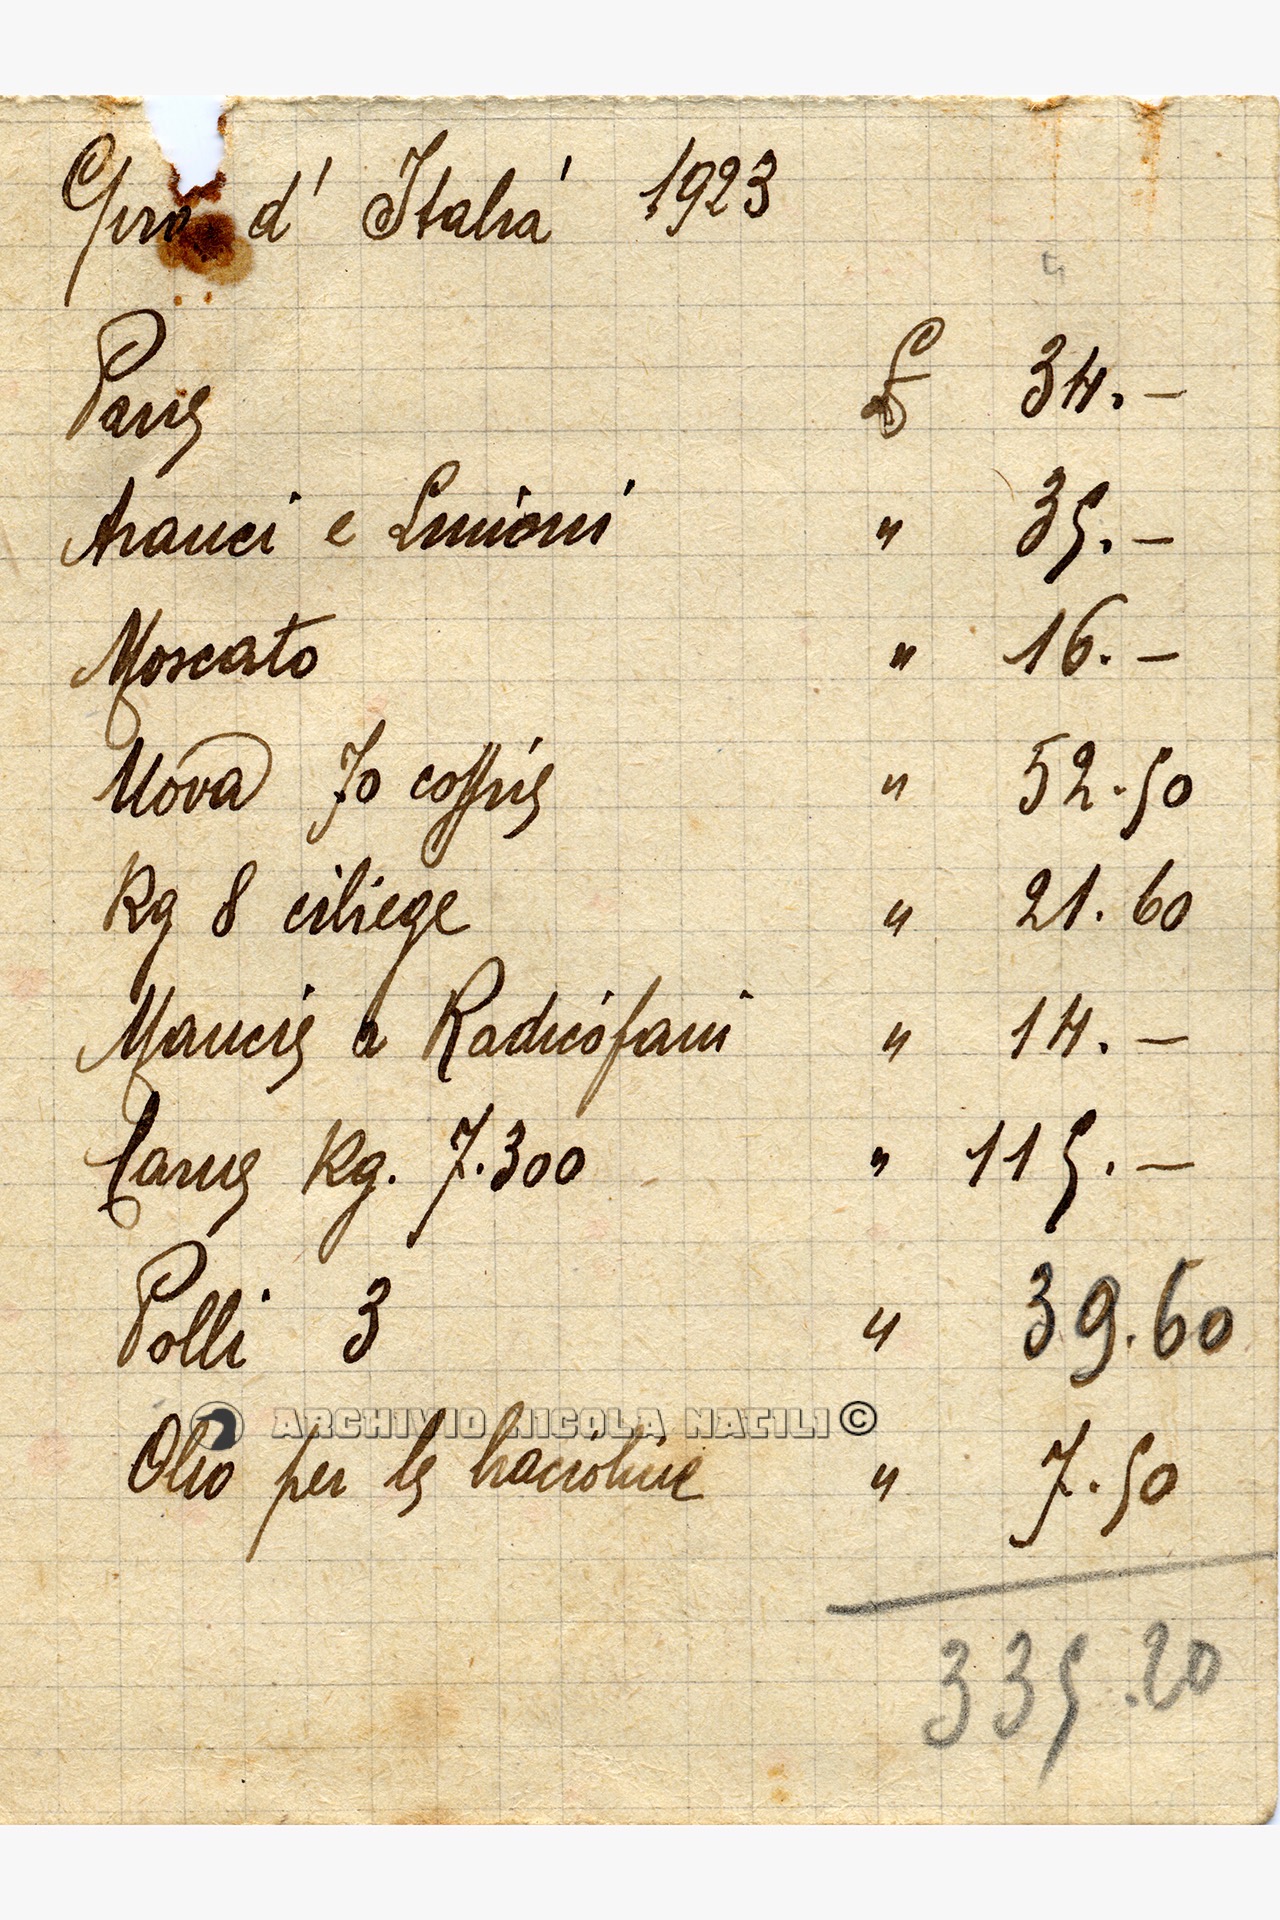 Giro d' Italia 1923
Pane £ 34.—
Aranci e Limoni " 35.—
Moscato " 16.—
Uova 70 coppie " 52.50
Kg 8 ciliege " 21.60
Mancie a Radicofani " 14.—
Carne Kg. 7.300 " 115.—
Polli 3 " 39.60
ARCHIVIO NICOLA NATILI ©
Olio per le bracioline " 7.50
335.20